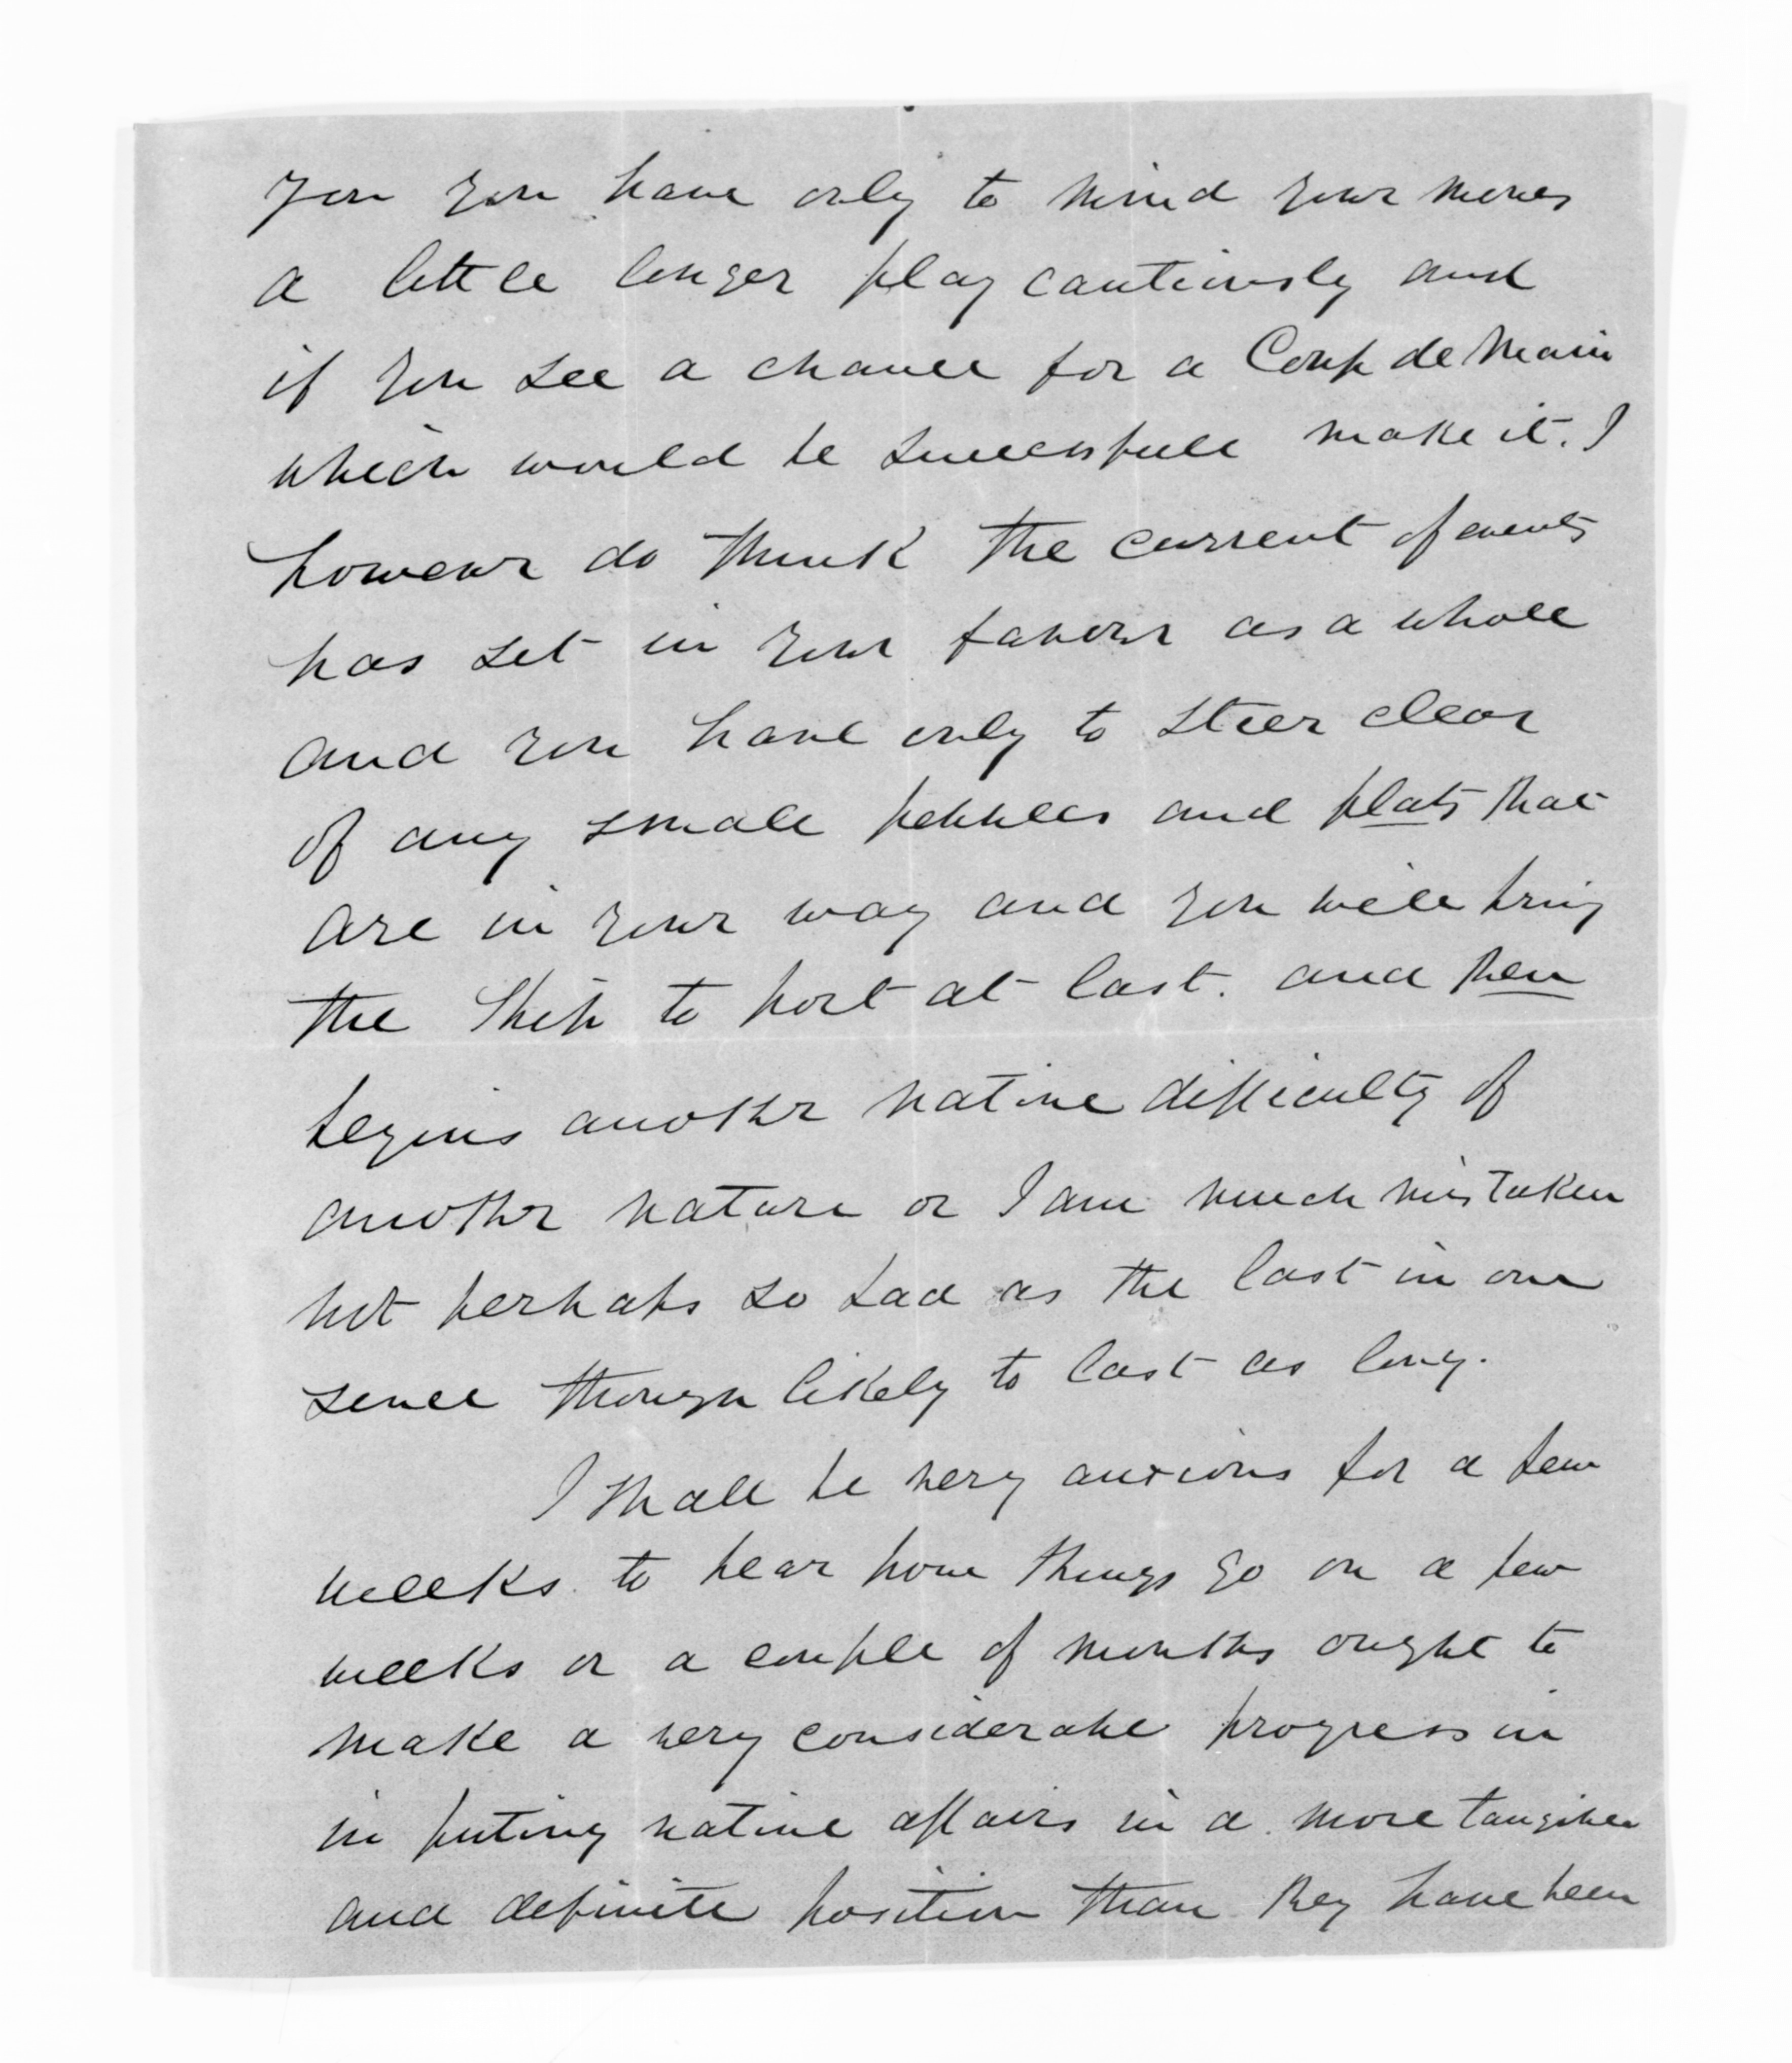 you you have only to mind your moves
a little longer play cautiously and
if you see a chance for a Coup de Main
which would be successfull make it. I
however do think the current of events
has set in your favour as a whole
and you have only to steer clear
of any small pebbles and plots that
are in your way and you will bring
the Ship to port at last. and then
begins another native difficulty of
another nature or I am much mistaken
not perhaps so bad as the last in one
sence though likely to last as long.
I shall be very anxious for a few
weeks to hear how things go on a few
weeks or a couple of months ought to
make a very considerable progress in
in puting native affairs in a more tangible
and definite position than they have been